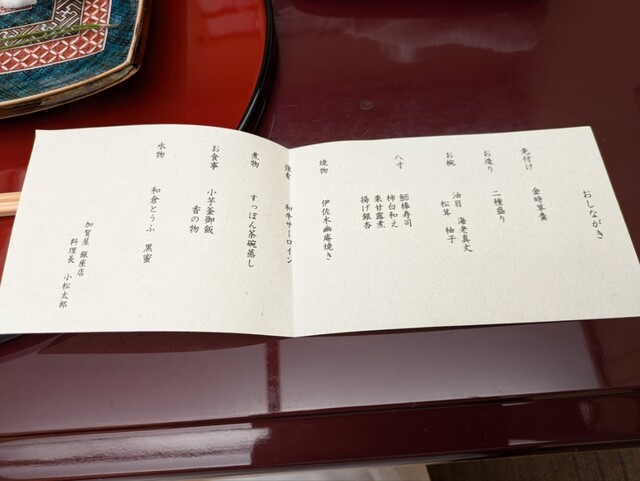 おしながき
先付け
金時草羹
お造り
二種盛り
お椀
油目 海老真丈
松茸 柚子
八寸
鯽棒寿司
柿白和え
栗甘露煮
揚げ銀杏
焼物
伊佐木幽庵焼き
強肴
和牛サーロイン
煮物
すっぽん茶碗蒸し
お食事
小芋釜御飯
香の物
水物
和倉とうふ 黒蜜
加賀屋 銀座店
料理長 小松太郎